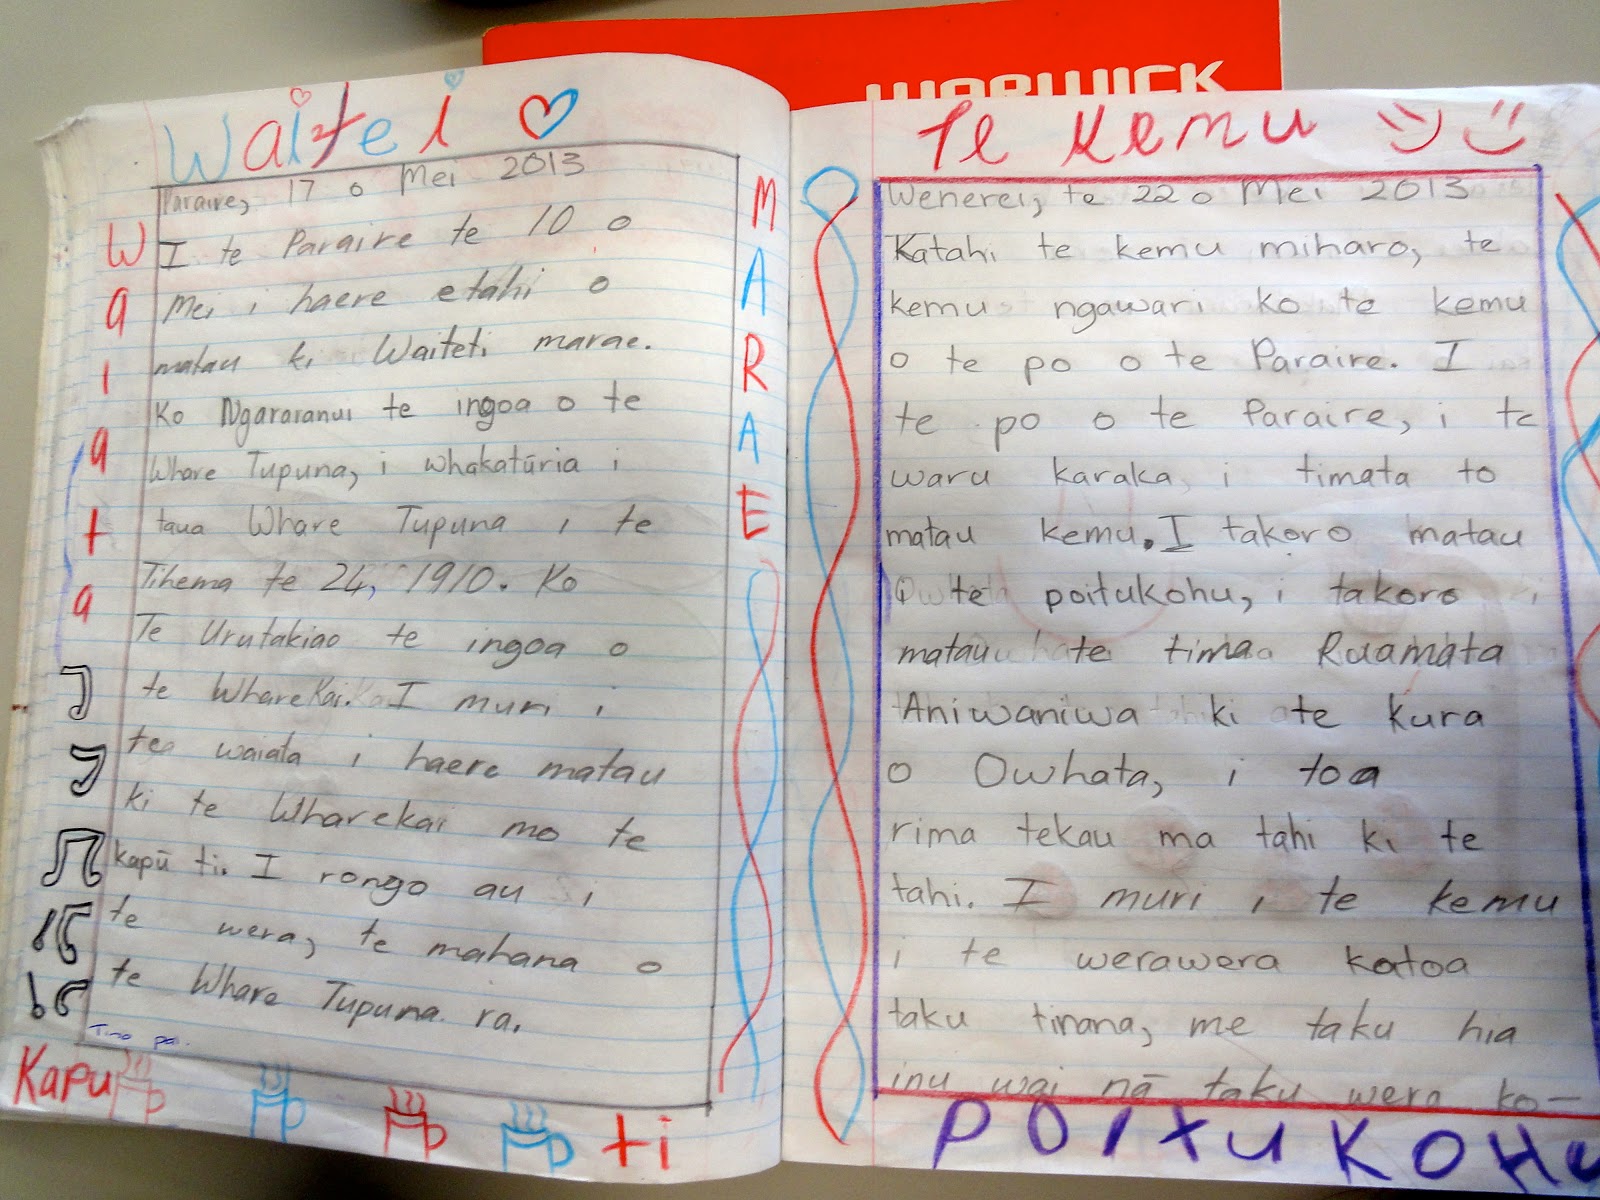 WARWICK
Waitei
Paraire, 17 o Mei 2013
I te Paraire te 10 o
Mei i haere etahi o
matau ki Waiteti marae.
Ko Ngararanui te ingoa o te
Whare Tupuna, i whakatūria i
taua Whare Tupuna i te
Tihema te 24, 1910. Ko
Te Urutakiao te ingoa o
te Wharekai. I muri i
te waiata i haere matau
ki te Wharekai mo te
kapū ti. I rongo au i
te wera, te mahana o
te Whare Tupuna ra.
Tino pai.
Waiata
MARAE
Kapu ti
Te Kemu
Wenerei, te 22 o Mei 2013
Katahi te kemu miharo, te
kemu ngawari ko te kemu
o te po o te Paraire. I
te po o te Paraire, i te
waru karaka i timata to
matau kemu. I takoro matau
i te poitukohu, i takoro
matau te tima Ruamata
Aniwaniwa ki te kura
o Owhata, i toa
rima tekau ma tahi ki te
tahi. I muri i te kemu
i te werawera katoa
taku tinana, me taku hia
inu wai nā taku wera ko-
POITUKOHU